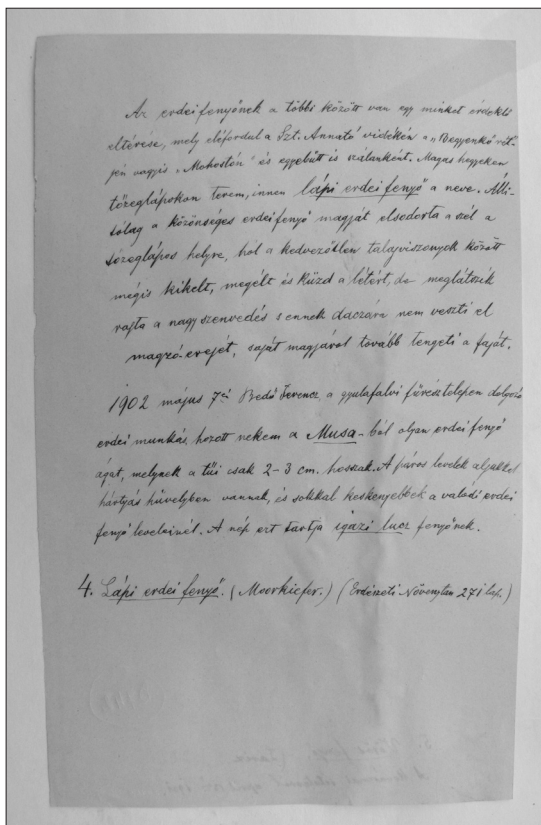 Az erdei fenyőnek a többi között van egy minket érdeklő
eltérése, mely előfordul a Szt. Annató vidékén a „Vegyenkő rét"
jén vagyis „Mohostón" és egyebütt is szálanként. Magas hegyeken
tőzeglápokon terem, innen lápi erdei fenyő a neve. Álli-
tólag a közönséges erdei fenyő magját elsodorta a szél a
tőzeglápos helyre, hol a kedvezőtlen talajviszonyok között
mégis kikelt, megélt és küzd a létért, de meglátszik
rajta a nagy szenvedés s ennek daczára nem veszti el
magzó erejét, saját magjáról tovább tengeti a faját.
1902 május 7én Bedő Ferencz, a gyulafalvi fűrésztelepen dolgozó
erdei munkás, hozott nekem a Musa-ból olyan erdei fenyő
ágat, melynek a tűi csak 2-3 cm. hosszak. A páros levelek aljukkal
hártyás hüvelyben vannak, és sokkal keskenyebbek a valódi erdei
fenyő leveleinél. A nép ezt tartja igazi lucz fenyőnek.
4. Lápi erdei fenyő. (Moorkiefer.) (Erdészeti Növénytan 271 lap.)